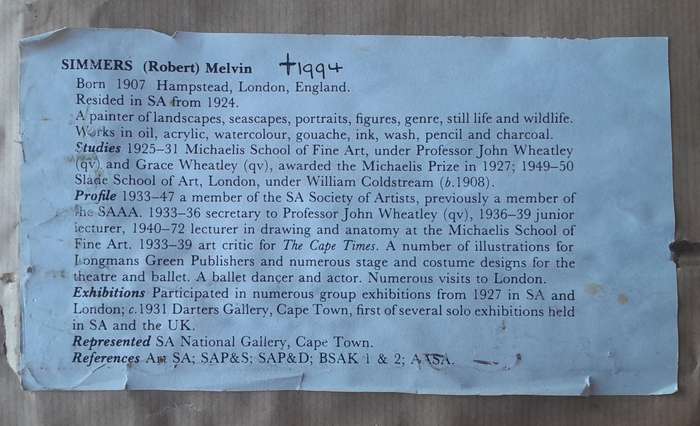 SIMMERS (Robert) Melvin †1994
Born 1907 Hampstead, London, England.
Resided in SA from 1924.
A painter of landscapes, seascapes, portraits, figures, genre, still life and wildlife.
Works in oil, acrylic, watercolour, gouache, ink, wash, pencil and charcoal.
Studies 1925–31 Michaelis School of Fine Art, under Professor John Wheatley
(qv) and Grace Wheatley (qv), awarded the Michaelis Prize in 1927; 1949–50
Slade School of Art, London, under William Coldstream (b.1908).
Profile 1933–47 a member of the SA Society of Artists, previously a member of
the SAAA. 1933–36 secretary to Professor John Wheatley (qv), 1936–39 junior
lecturer, 1940–72 lecturer in drawing and anatomy at the Michaelis School of
Fine Art. 1933–39 art critic for The Cape Times. A number of illustrations for
Longmans Green Publishers and numerous stage and costume designs for the
theatre and ballet. A ballet dancer and actor. Numerous visits to London.
Exhibitions Participated in numerous group exhibitions from 1927 in SA and
London; c.1931 Darters Gallery, Cape Town, first of several solo exhibitions held
in SA and the UK.
Represented SA National Gallery, Cape Town.
References Art SA; SAP&S; SAP&D; BSAK 1 & 2; AASA.